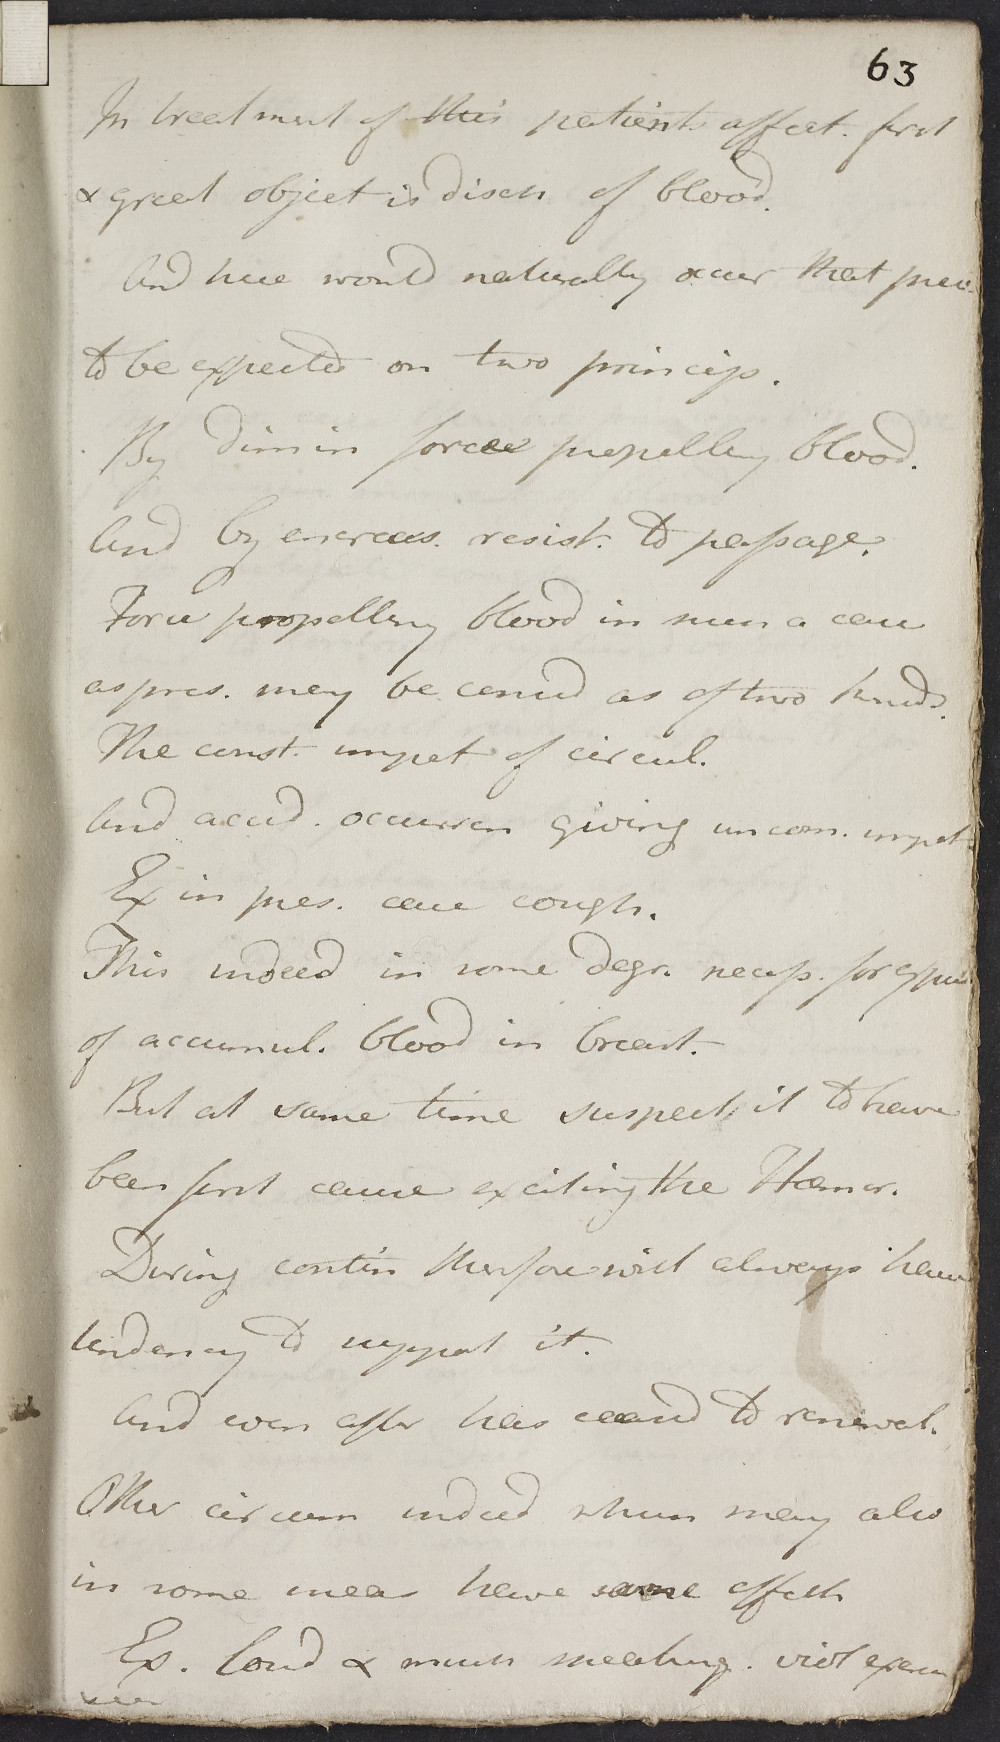 63
In treatment of this patients affect. first
& great object is disch of blood.
And here would naturally occur that prev.
to be expected on two princips.
By dimin force propelling blood.
And by encreas. resist. to passage.
Force propelling blood in such a case
as pres. may be consid as of two kinds.
The const. impet of circul.
And accid. occurren giving uncom. impet.
Ex in pres. case cough.
This indeed in some degr. necess. for
of accumul. blood in breast.
But at same time suspect it to have
been first cause exciting the Hæmor.
During contin therefore will always have
tendency to support it.
And even after has ceasd to renewal.
Other circum indeed which may also
in some meas have same effects
Ex. loud & much speaking. viol exerc